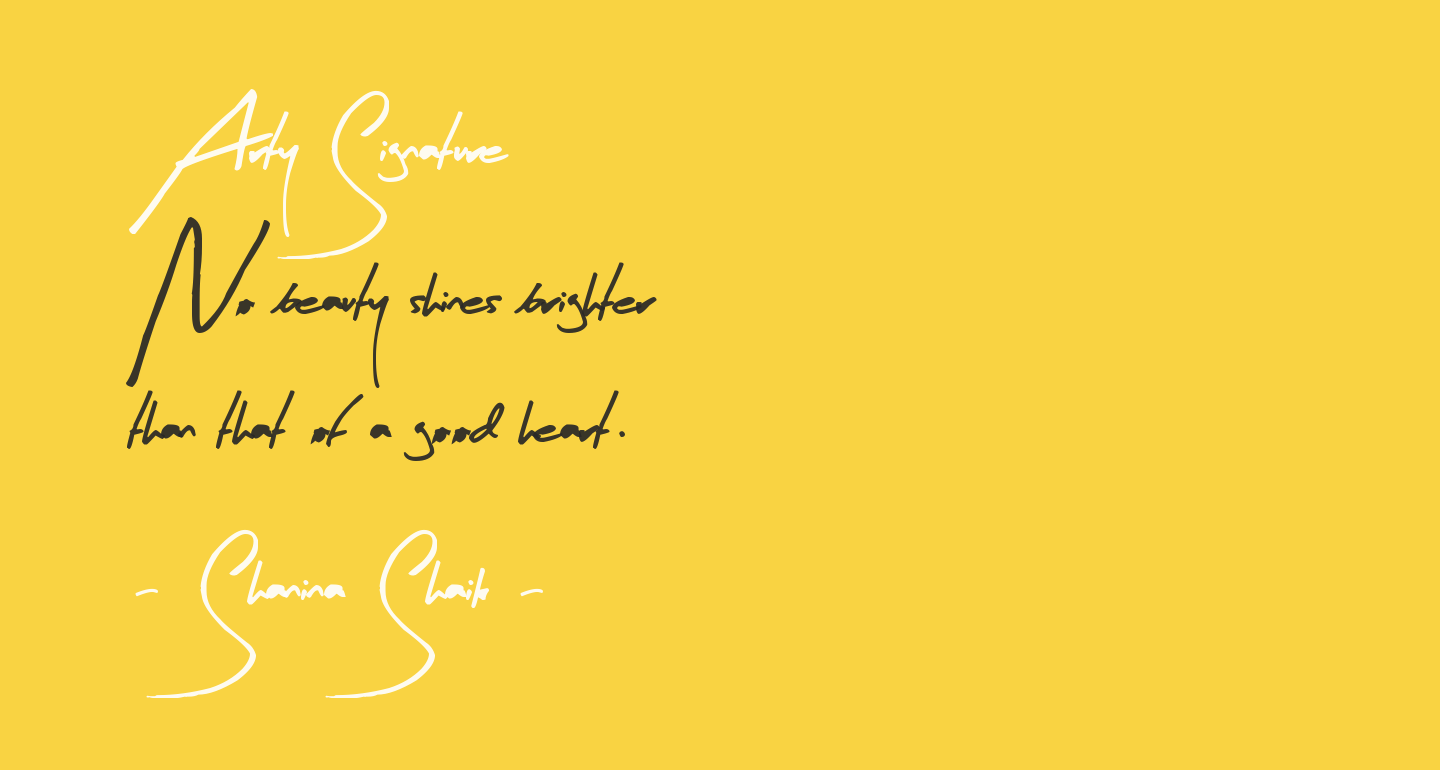 Arty Signature
No beauty shines brighter
than that of a good heart.
- Shanina Shaik -